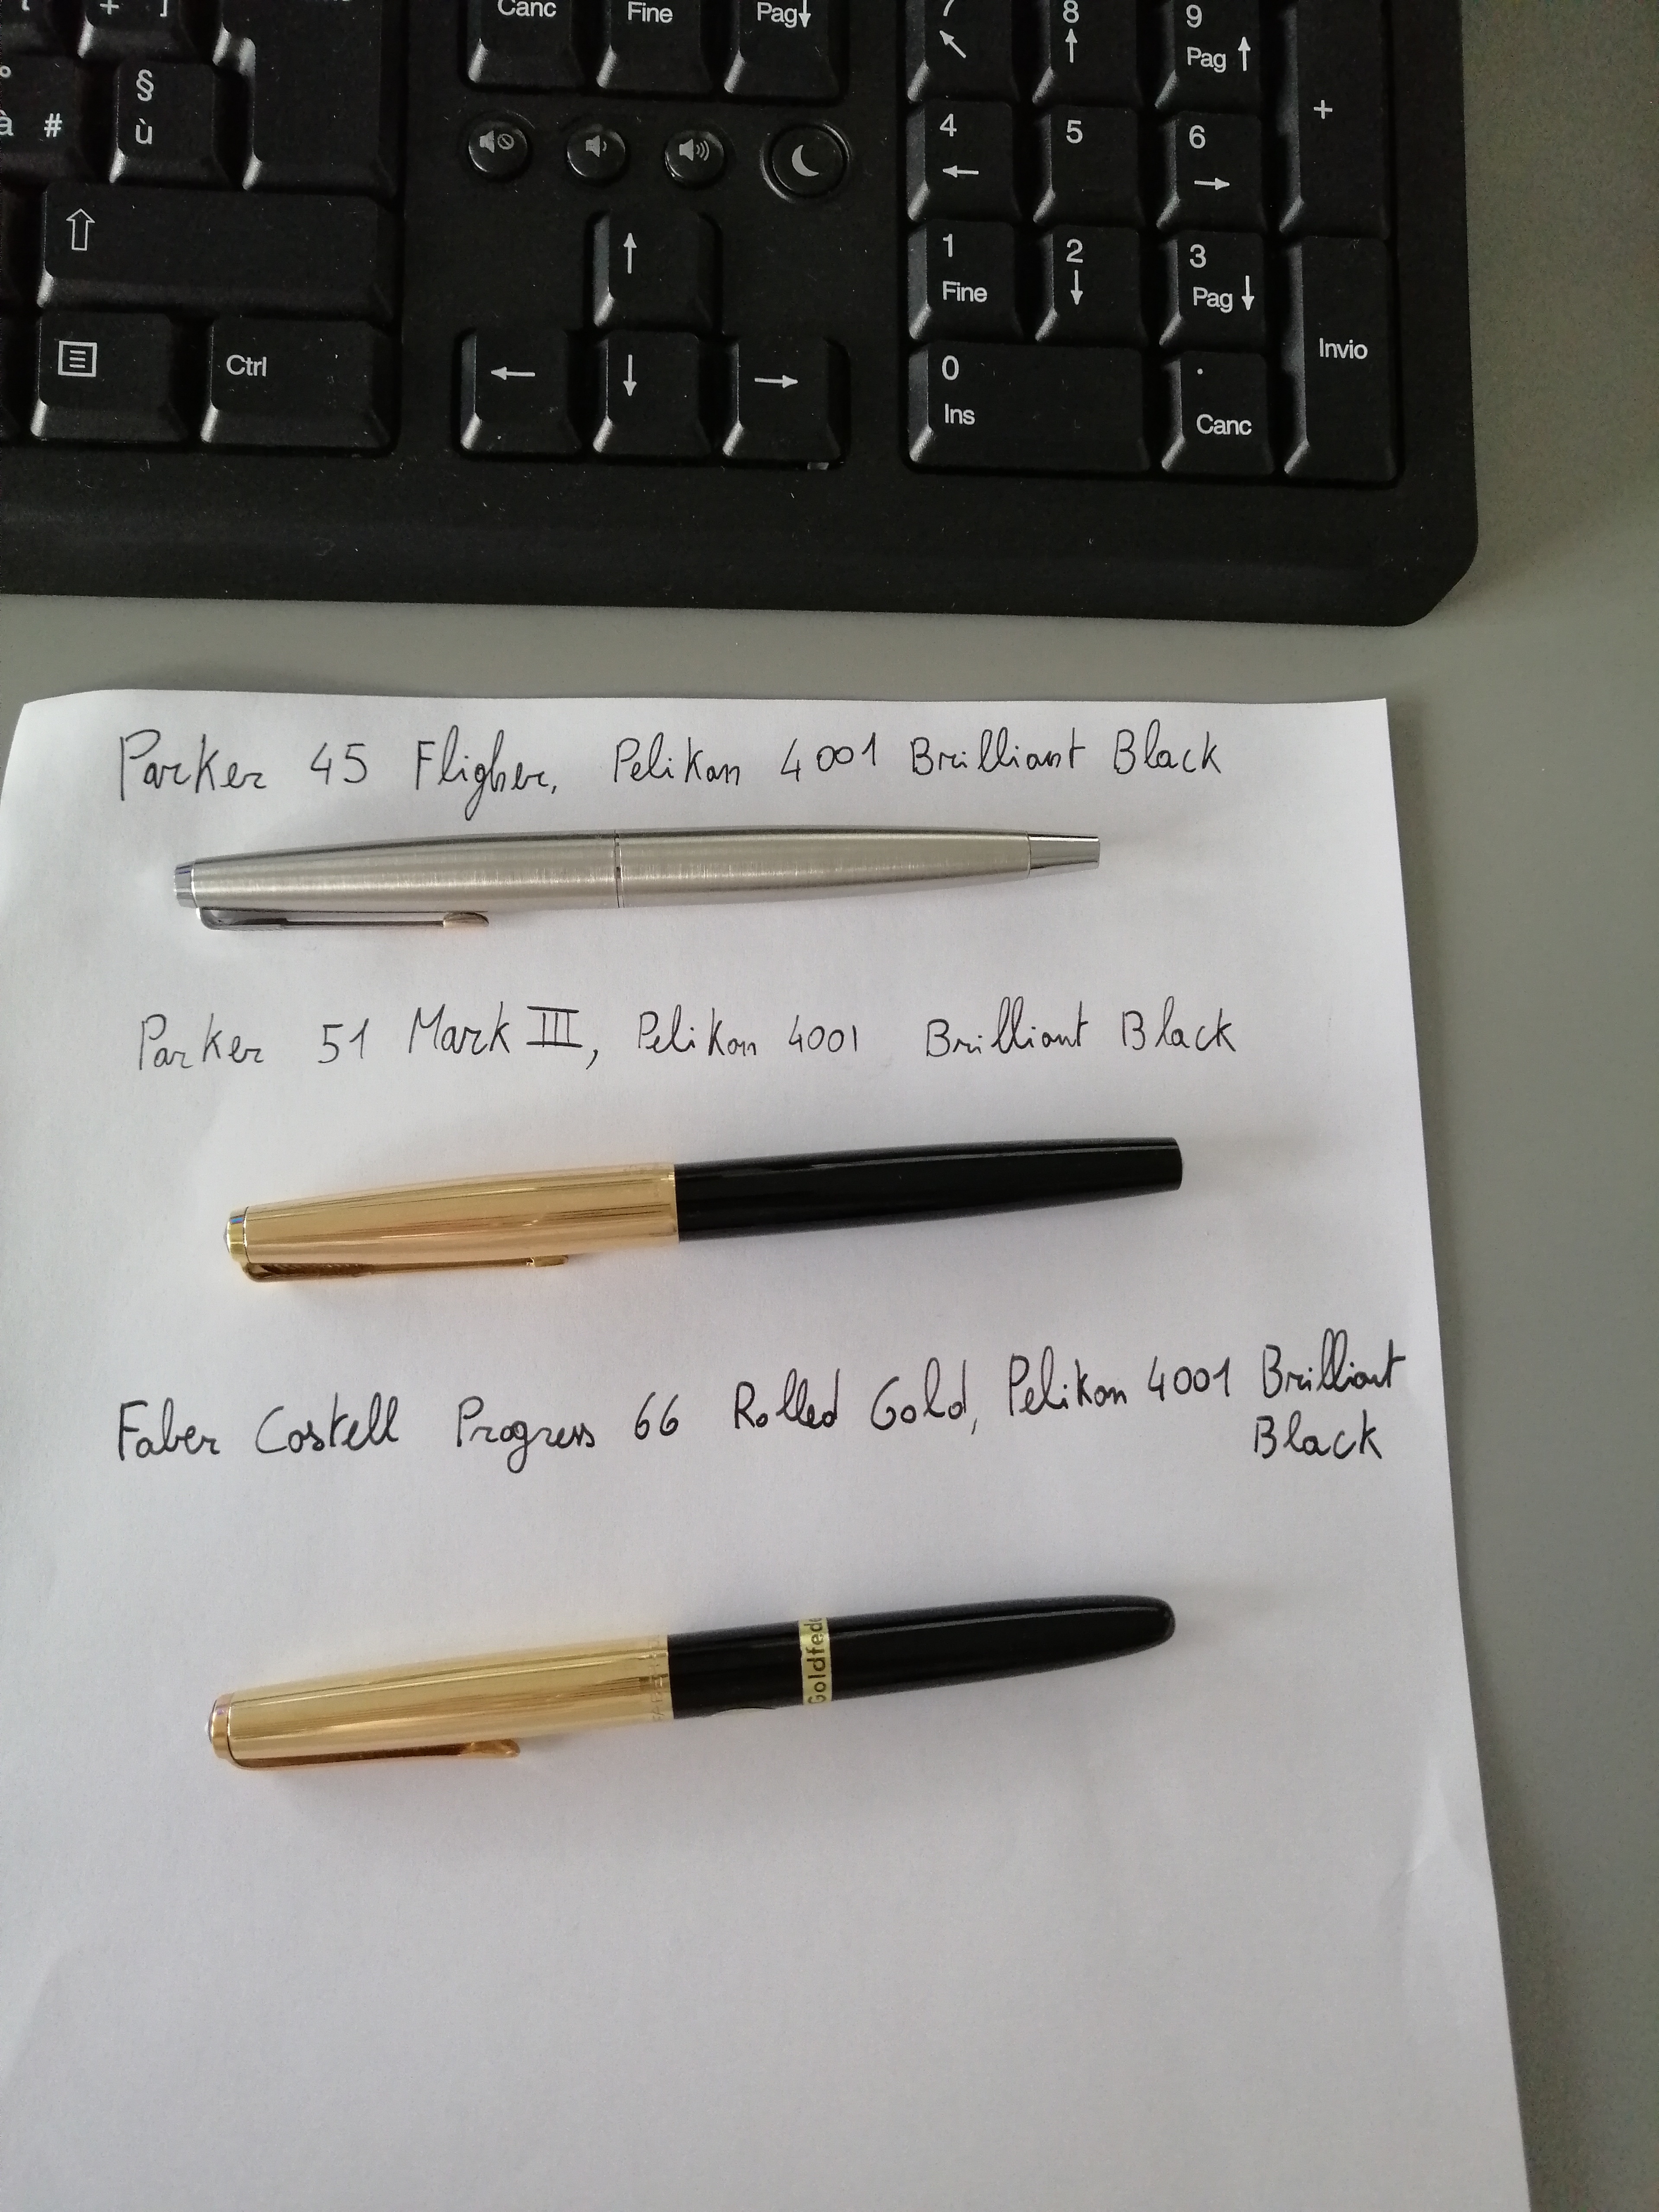 Canc Fine Pag↓
7 8 9 Pag ↑
+
§
ù
à #
4 5 6
1 Fine 2 3 Pag ↓
Invio
Ctrl
0 Ins . Canc
Parker 45 Fligher, Pelikan 4001 Brilliant Black
Parker 51 Mark III, Pelikan 4001 Brilliant Black
Faber Castell Progress 66 Rolled Gold, Pelikan 4001 Brilliant
Black
Goldfed